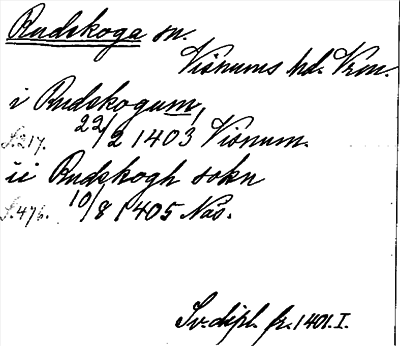 Rudskoga sn.
Visnums hd. Vrm.
i Rudskogum,
S.217. 22/2 1403 Visnum.
ii Rudskogh sokn
S.476. 10/8 1405 Näs.
Sv. dipl. fr. 1401. I.